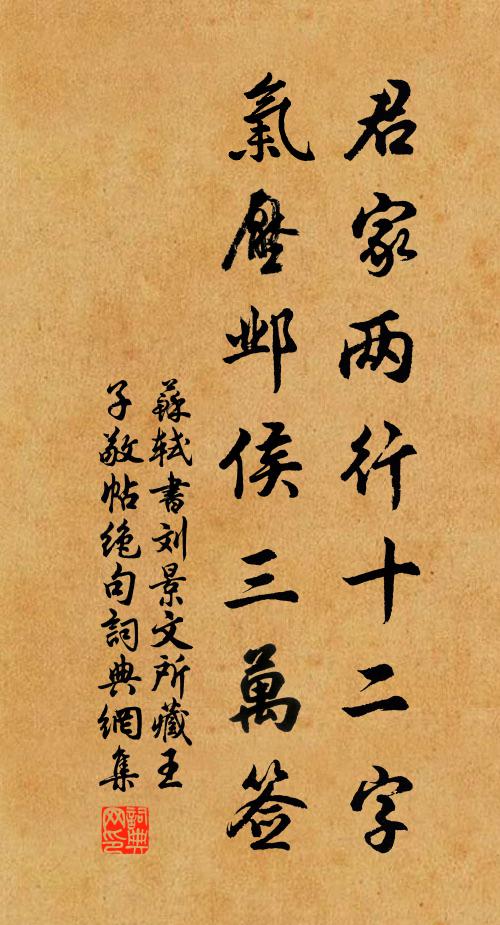 君家两行十二字
氣壓邺侯三萬签
蘇轼書刘景文所藏王
子敬帖绝句詞典網集
詞典
网印